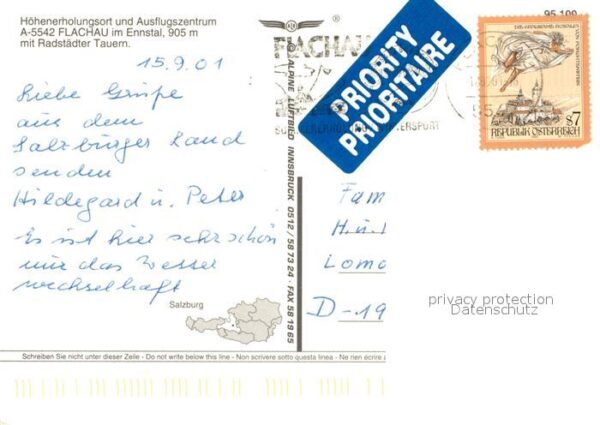 Höhenerholungsort und Ausflugszentrum
A-5542 FLACHAU im Ennstal, 905 m
mit Radstädter Tauern.
95 100
15.9.01
Liebe Grüße
aus dem
Salzburger Land
senden
Hildegard u. Peter
Es ist hier sehr schön
nur das Wetter
wechselhaft
Salzburg
ALPINE LUFTBILD INNSBRUCK 0512 / 58 73 24 - FAX 58 19 65
FLACHAU
WINTERSPORT
PRIORITY
PRIORITAIRE
VON FORCHTENSTEIN
REPUBLIK ÖSTERREICH
S7
Fam
H.u.
Lomo
D-19
privacy protection
Datenschutz
Schreiben Sie nicht unter dieser Zeile - Do not write below this line - Non scrivere sotto questa linea - Ne rien écrire